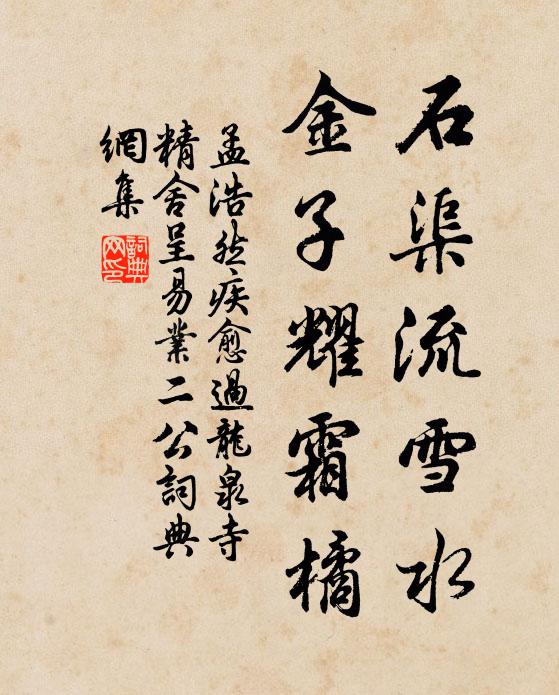 石渠流雪水
金子耀霜橘
孟浩然疾愈過龍泉寺
精舍呈易業二公詞典
網集
詞典
网印